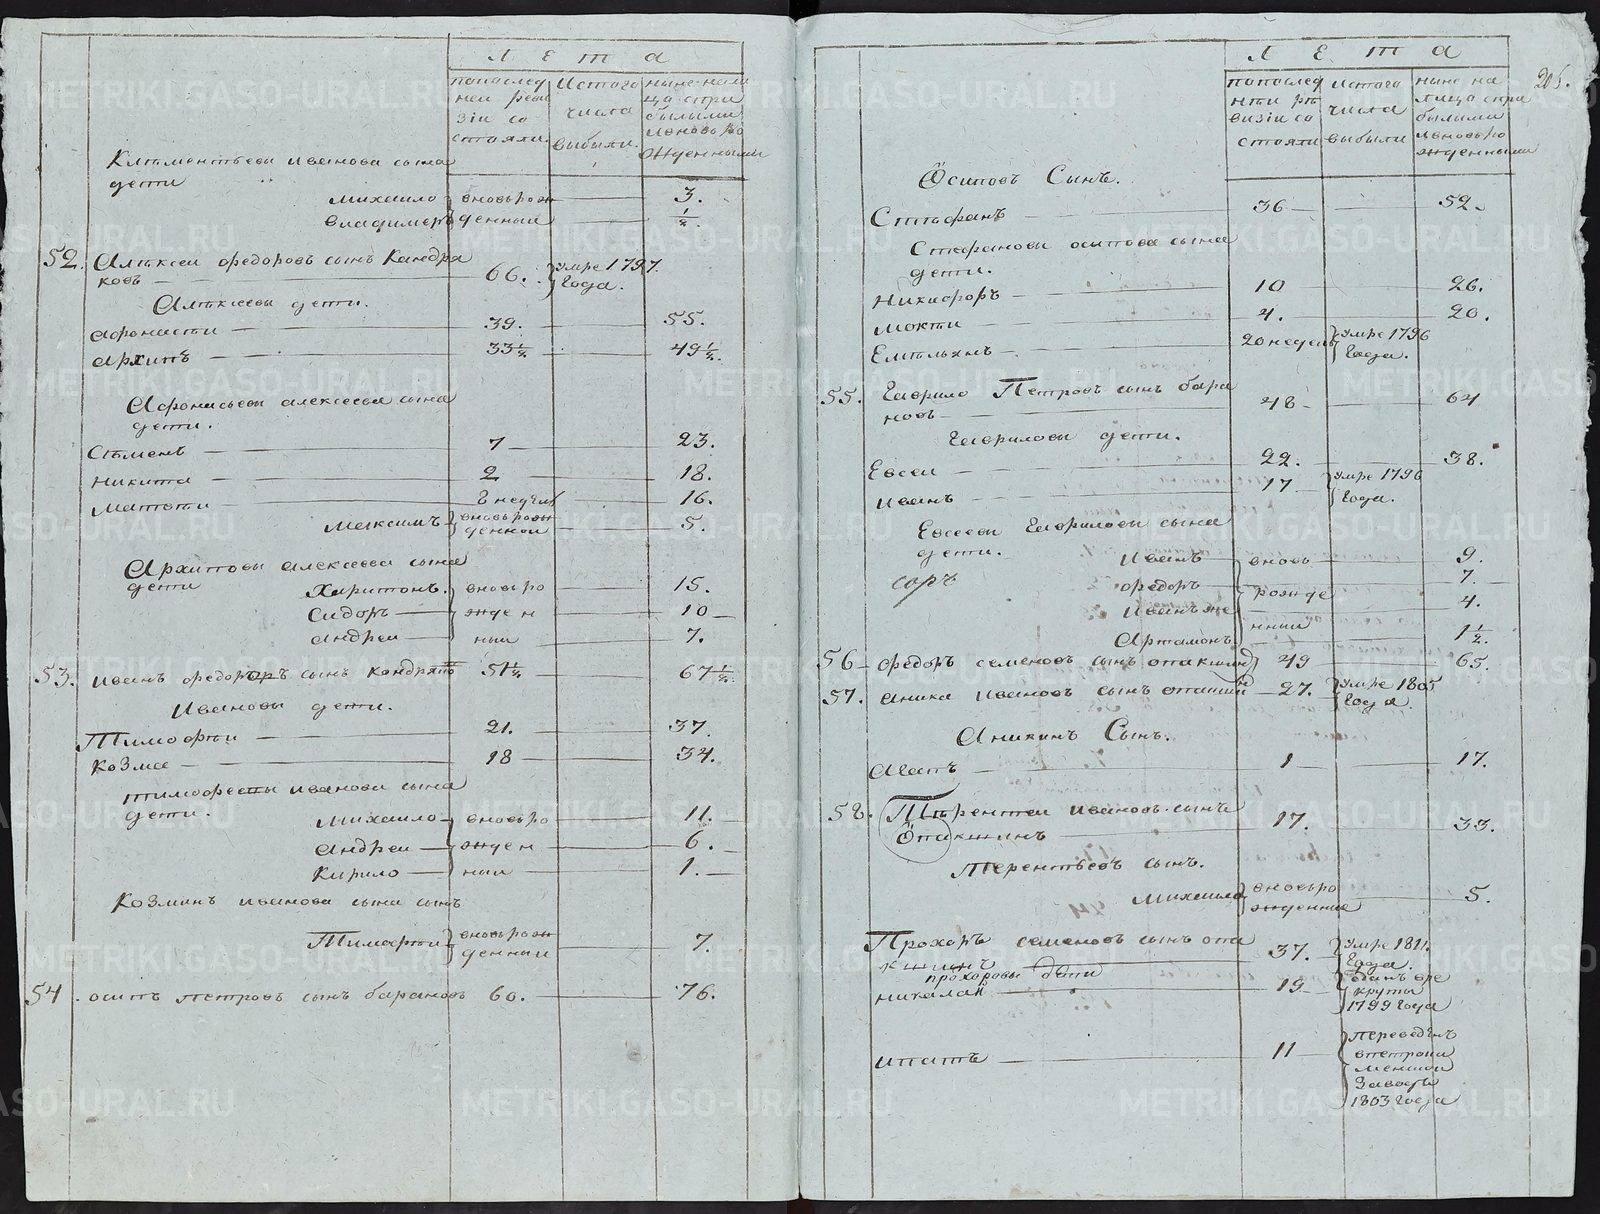 Лета
попослед
ней реви
зіи со
стояли
Истого
числа
выбыли
ныне нали
цо спри
былыми
иновь ро
жденными
Клементьевы иванова сына
дети
михаило вновьрож 3.
владимеръ денныи ½.
52. Алексеи федоровъ сынъ Кандра
ковъ 66. умре 1797.
года.
Алексеевы дети.
афонасеи 39. 55.
архипъ 33½ 49½.
Афонасьевы алексеева сына
дети.
Семенъ 7 23.
никита 2 18.
матвеи 2 недель 16.
максимъ вновьрож 5.
деннои
Архиповы алексеева сына
дети Харитонъ. вновьро 15.
Сидоръ жден 10
андреи ныи 7.
53. иванъ федоровъ сынъ кондрато 51½ 67½.
Ивановы дети.
Тимофеи 21. 37.
козма 18 34.
тимофеевы иванова сына
дети. михаило вновьро 11.
андреи жден 6.
кирило ныи 1.
козминъ иванова сына сынъ
Тимофеи вновьрож 7.
денныи
54. осипъ петровъ сынъ барановъ 60. 76.
205.
Лета
попослед
неи ре
визіи со
стояли
Истого
числа
выбыли
ныне на
лицо спри
былыми
иновьро
жденными
Осиповъ Сынъ.
Степанъ 36 52.
Степановы осипова сына
дети.
Никифоръ 10 26.
мокеи 4. 20.
Емельянъ 20 недель умре 1796
года.
55. Гаврило Петровъ сынъ бара
новъ 48 64
Гавриловы дети.
Евсеи 22. 38.
иванъ 17 умре 1796
года.
Евсеевы Гаврилова сына
дети. иванъ вновь 9.
федоръ рожде 7.
иванъ же 4.
Артамонъ. нныи 1½.
56 федоръ семеновъ сынъ опакшин 49 65.
57. аника ивановъ сынъ опакшин 27. умре 1805
года.
Аникинъ Сынъ.
Агапъ 1 17.
58. Терентеи ивановъ сынъ
Опакшинъ 17. 33.
Терентьевъ сынъ.
михаило вновьро 5.
жденные
Прохоръ семеновъ сынъ опа
кшинъ 37. умре 1811.
года.
прохоровы дети
николаи 19 отданъ вре
круты
1799 года
ипатъ 11 переведенъ
впетрока
менскои
Заводъ
1803 года